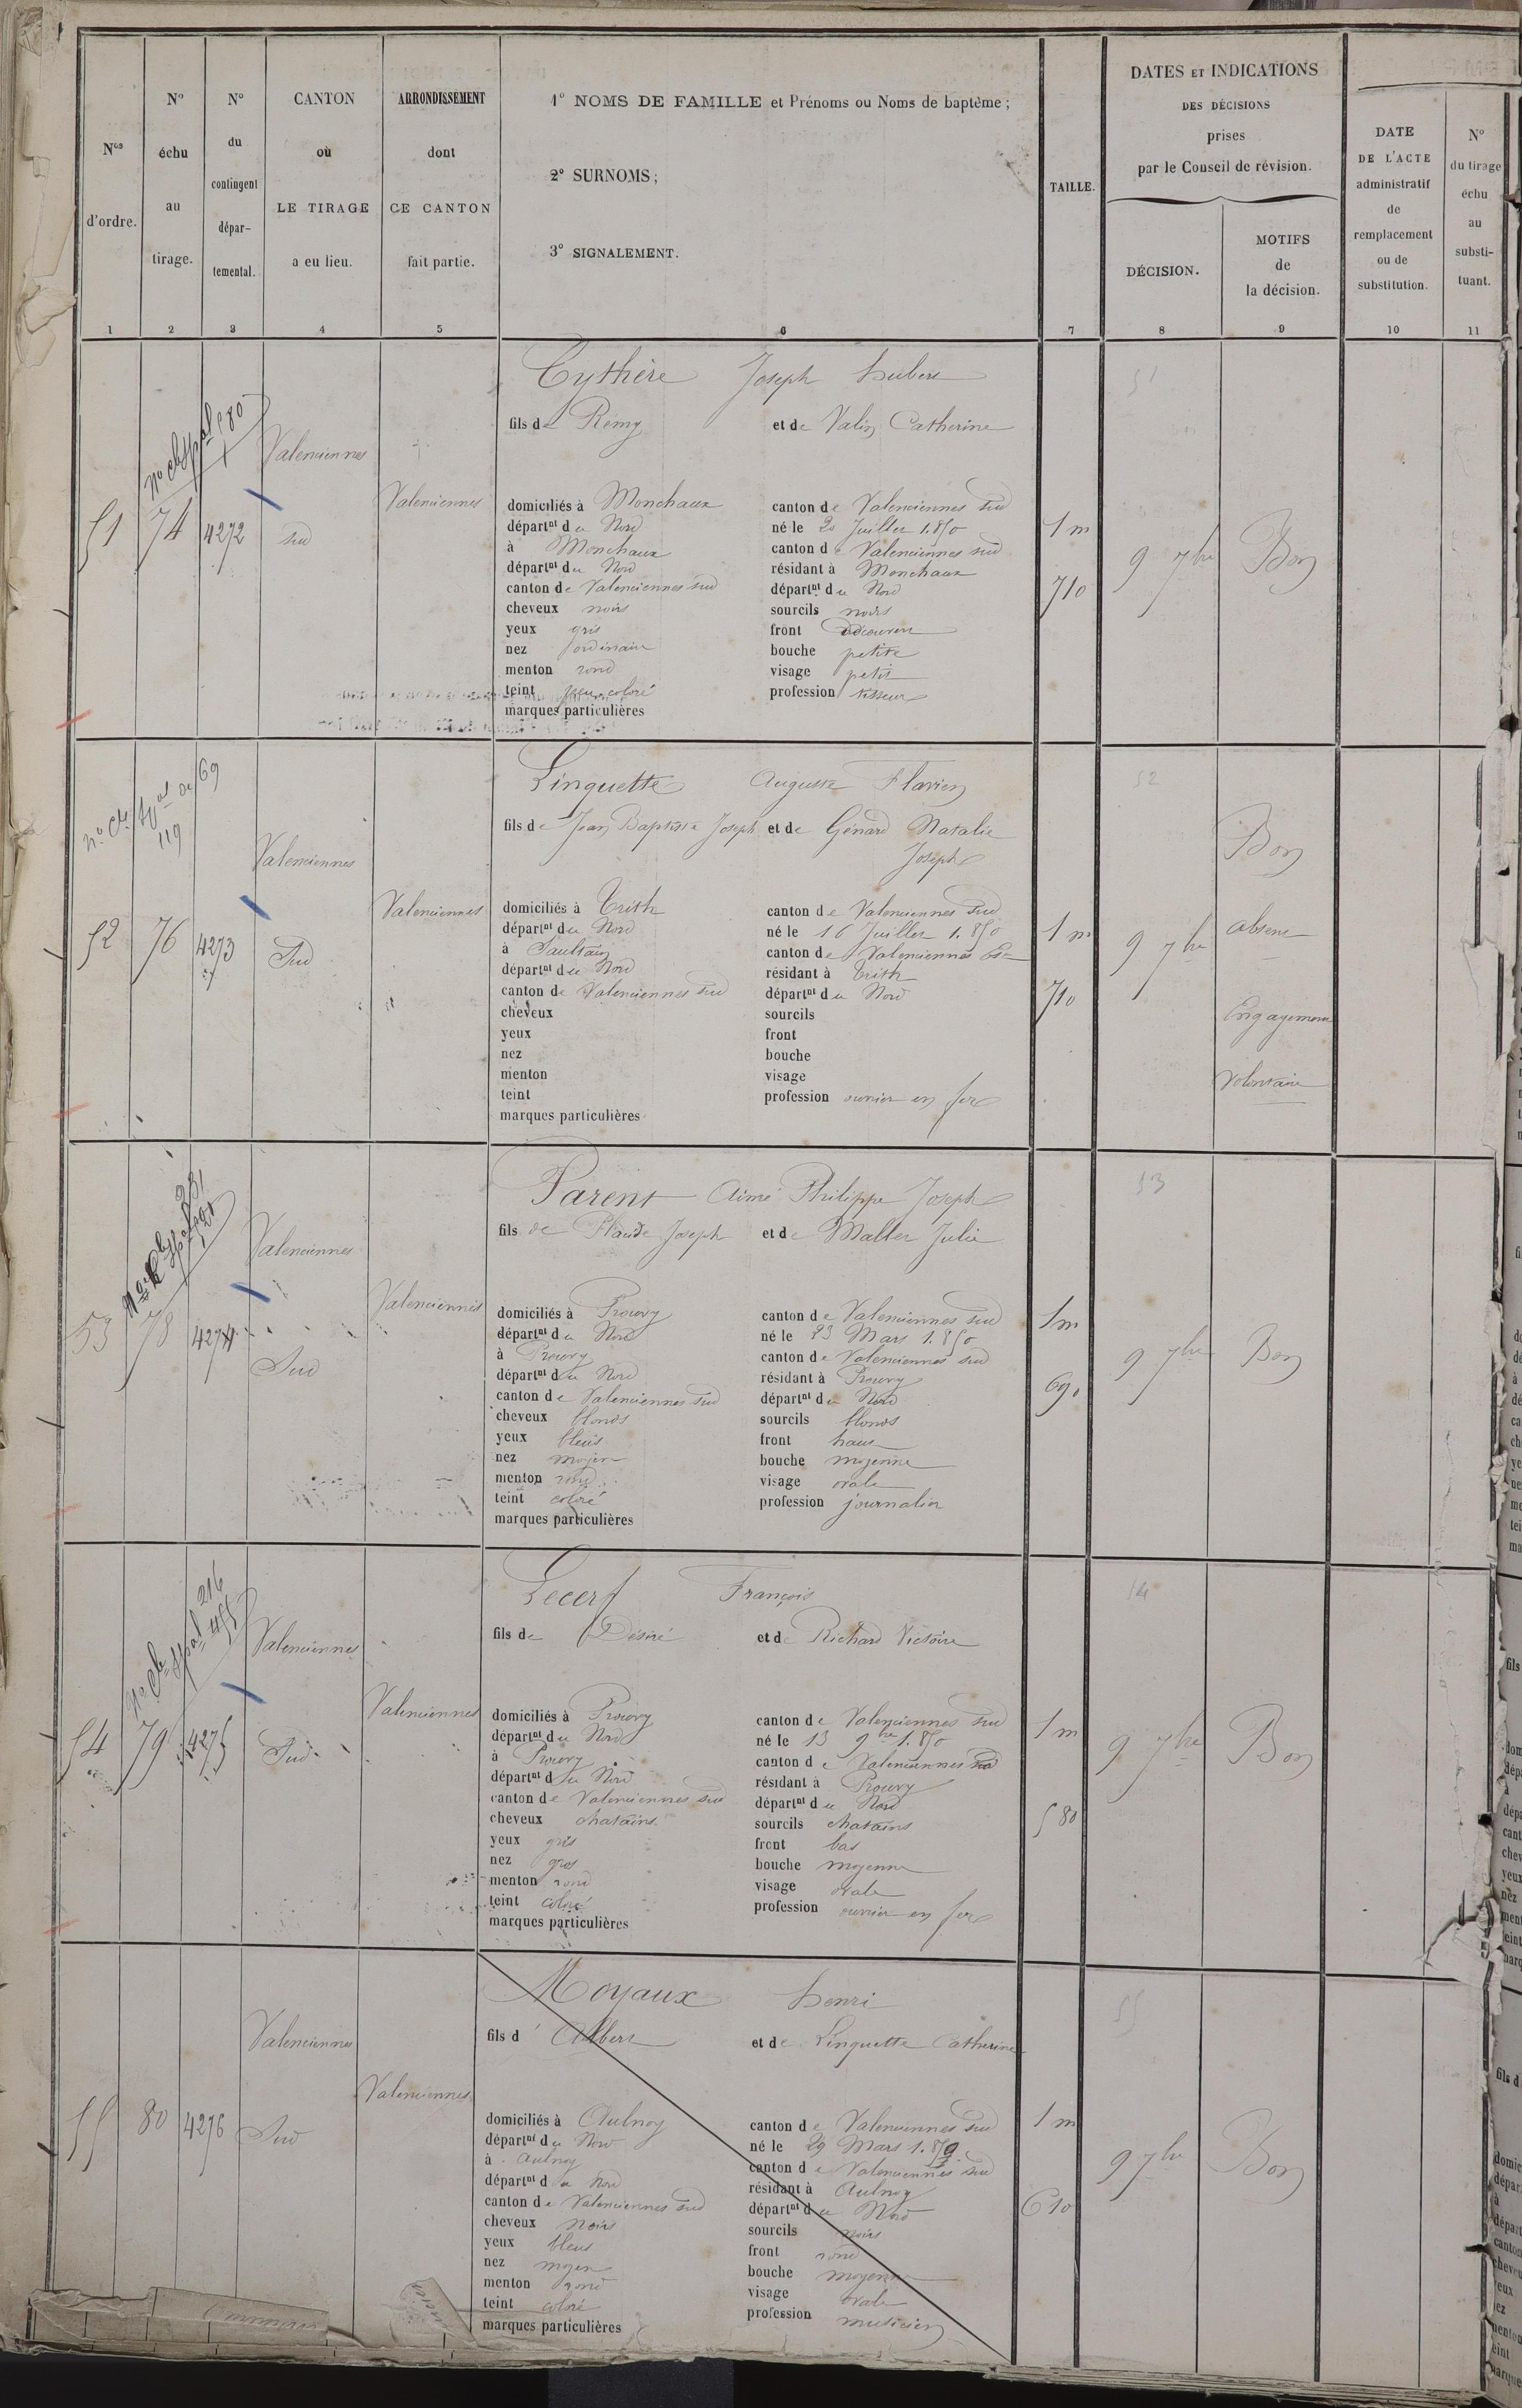 Nos d'ordre.
No échu au tirage.
No du contingent dépar-temental.
CANTON où LE TIRAGE a eu lieu.
ARRONDISSEMENT dont CE CANTON fait partie.
1° NOMS DE FAMILLE et Prénoms ou Noms de baptême;
2° SURNOMS;
3° SIGNALEMENT.
TAILLE.
DATES ET INDICATIONS
DES DÉCISIONS
prises
par le Conseil de révision.
DÉCISION.
MOTIFS de la décision.
DATE DE L'ACTE administratif de remplacement ou de substitution.
No du tirage échu au substi-tuant.
1 2 3 4 5 6 7 8 9 10 11
Cythère Joseph hubert
51
fils de Rémy et de Valin Catherine
Valenciennes
Valenciennes
51 74 4272 sud
domiciliés à Monchaux canton de Valenciennes sud
départnt du Nord né le 20 Juillet 1.850
à Monchaux canton de Valenciennes sud
départnt du Nord résidant à Monchaux
canton de Valenciennes sud départnt du Nord
cheveux noirs sourcils noirs
yeux gris front découvert
nez ordinaire bouche petite
menton rond visage petit
teint peu coloré profession tisseur
marques particulières
1 m 710
9 7bre Bon
Linquette Auguste Flavien
52
no de 69
119
fils de Jean Baptiste Joseph et de Génard Natalie
Joseph
Valenciennes
Valenciennes
52 76 4273 Sud
domiciliés à Trith canton de Valenciennes Sud
départnt du Nord né le 16 Juillet 1.850
à Saultain canton de Valenciennes Est
départnt du Nord résidant à Trith
canton de Valenciennes sud départnt du Nord
cheveux sourcils
yeux front
nez bouche
menton visage
teint profession ouvrier en fer
marques particulières
1 m 710
9 7bre
Bon
absent
Engagement
Volontaire
Parent Aimé Philippe Joseph
53
fils de Plaude Joseph et de Mallez Julie
Valenciennes
Valenciennes
53 78 4274 Sud
domiciliés à Prouvy canton de Valenciennes sud
départnt du Nord né le 23 Mars 1.850
à Prouvy canton de Valenciennes sud
départnt du Nord résidant à Prouvy
canton de Valenciennes sud départnt du Nord
cheveux blonds sourcils blonds
yeux bleus front haut
nez moyen bouche moyenne
menton rond visage ovale
teint coloré profession journalier
marques particulières
1 m 690
9 7bre Bon
Lecerf François
54
fils de Désiré et de Richard Victoire
Valenciennes
Valenciennes
54 79 4275 Sud
domiciliés à Prouvy canton de Valenciennes sud
départnt du Nord né le 13 9bre 1.850
à Prouvy canton de Valenciennes sud
départnt du Nord résidant à Prouvy
canton de Valenciennes sud départnt du Nord
cheveux chatains sourcils chatains
yeux gris front bas
nez gros bouche moyenne
menton rond visage ovale
teint coloré profession ouvrier en fer
marques particulières
1 m 580
9 7bre Bon
Moyaux henri
55
fils d'Albert et de Linquette Catherine
Valenciennes
Valenciennes
55 80 4276 Sud
domiciliés à Aulnoy canton de Valenciennes sud
départnt du Nord né le 29 Mars 1.850
à Aulnoy canton de Valenciennes sud
départnt du Nord résidant à Aulnoy
canton de Valenciennes sud départnt du Nord
cheveux noirs sourcils noirs
yeux bleus front rond
nez moyen bouche moyenne
menton rond visage ovale
teint coloré profession musicien
marques particulières
1 m 610
9 7bre Bon